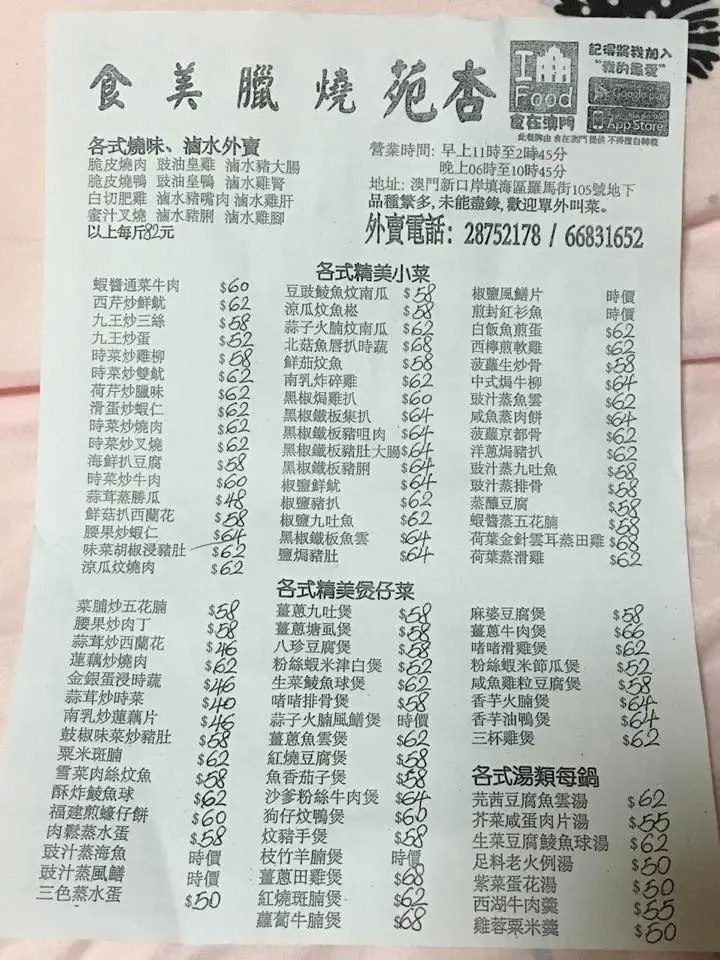 食美臘燒苑杏
I
Food
食在澳門
記得將我加入
"我的最愛"
Google play
App Store
此餐牌由 食在澳門 提供 不得擅自轉載
各式燒味、滷水外賣
脆皮燒肉 豉油皇雞 滷水豬大腸
脆皮燒鴨 豉油皇鴨 滷水雞腎
白切肥雞 滷水豬嘴肉 滷水雞肝
蜜汁叉燒 滷水豬脷 滷水雞腳
以上每斤82元
營業時間: 早上11時至2時45分
晚上06時至10時45分
地址: 澳門新口岸填海區羅馬街105號地下
品種繁多, 未能盡錄, 歡迎單外叫菜。
外賣電話: 28752178 / 66831652
各式精美小菜
蝦醬通菜牛肉 $60
西芹炒鮮魷 $62
九王炒三絲 $58
九王炒蛋 $52
時菜炒雞柳 $58
時菜炒雙魷 $62
荷芹炒臘味 $62
滑蛋炒蝦仁 $62
時菜炒燒肉 $62
時菜炒叉燒 $62
海鮮扒豆腐 $58
時菜炒牛肉 $60
蒜茸蒸勝瓜 $48
鮮菇扒西蘭花 $58
腰果炒蝦仁 $64
味菜胡椒浸豬肚 $62
涼瓜炆燒肉 $62
豆豉鯪魚炆南瓜 $58
涼瓜炆魚崧 $58
蒜子火腩炆南瓜 $62
北菇魚唇扒時蔬 $68
鮮茄炆魚 $58
南乳炸碎雞 $62
黑椒焗雞扒 $60
黑椒鐵板集扒 $64
黑椒鐵板豬咀肉 $64
黑椒鐵板豬肚大腸 $64
黑椒鐵板豬脷 $64
椒鹽鮮魷 $64
椒鹽豬扒 $62
椒鹽九吐魚 $62
黑椒鐵板魚雲 $64
鹽焗豬肚 $64
椒鹽風鱔片 時價
煎封紅衫魚 時價
白飯魚煎蛋 $62
西檸煎軟雞 $62
菠蘿生炒骨 $58
中式焗牛柳 $64
豉汁蒸魚雲 $62
咸魚蒸肉餅 $64
菠蘿京都骨 $62
洋蔥焗豬扒 $62
豉汁蒸九吐魚 $58
豉汁蒸排骨 $58
蒸釀豆腐 $58
蝦醬蒸五花腩 $58
荷葉金針雲耳蒸田雞 $68
荷葉蒸滑雞 $62
菜脯炒五花腩 $58
腰果炒肉丁 $58
蒜茸炒西蘭花 $46
蓮藕炒燒肉 $62
金銀蛋浸時蔬 $46
蒜茸炒時菜 $40
南乳炒蓮藕片 $46
鼓椒味菜炒豬肚 $58
粟米斑腩 $62
雪菜肉絲炆魚 $58
酥炸鯪魚球 $62
福建煎蠔仔餅 $60
肉鬆蒸水蛋 $58
豉汁蒸海魚 時價
豉汁蒸風鱔 時價
三色蒸水蛋 $50
各式精美煲仔菜
薑蔥九吐煲 $58
薑蔥塘虱煲 $58
八珍豆腐煲 $58
粉絲蝦米津白煲 $52
生菜鯪魚球煲 $62
啫啫排骨煲 $58
蒜子火腩風鱔煲 時價
薑蔥魚雲煲 $62
紅燒豆腐煲 $58
魚香茄子煲 $58
沙爹粉絲牛肉煲 $64
狗仔炆鴨煲 $60
炆豬手煲 $58
枝竹羊腩煲 時價
薑蔥田雞煲 $68
紅燒斑腩煲 $62
蘿蔔牛腩煲 $68
麻婆豆腐煲 $58
薑蔥牛肉煲 $66
啫啫滑雞煲 $62
粉絲蝦米節瓜煲 $52
咸魚雞粒豆腐煲 $58
香芋火腩煲 $64
香芋油鴨煲 $64
三杯雞煲 $62
各式湯類每鍋
芫茜豆腐魚雲湯 $62
芥菜咸蛋肉片湯 $55
生菜豆腐鯪魚球湯 $62
足料老火例湯 $50
紫菜蛋花湯 $50
西湖牛肉羹 $55
雞蓉粟米羹 $50